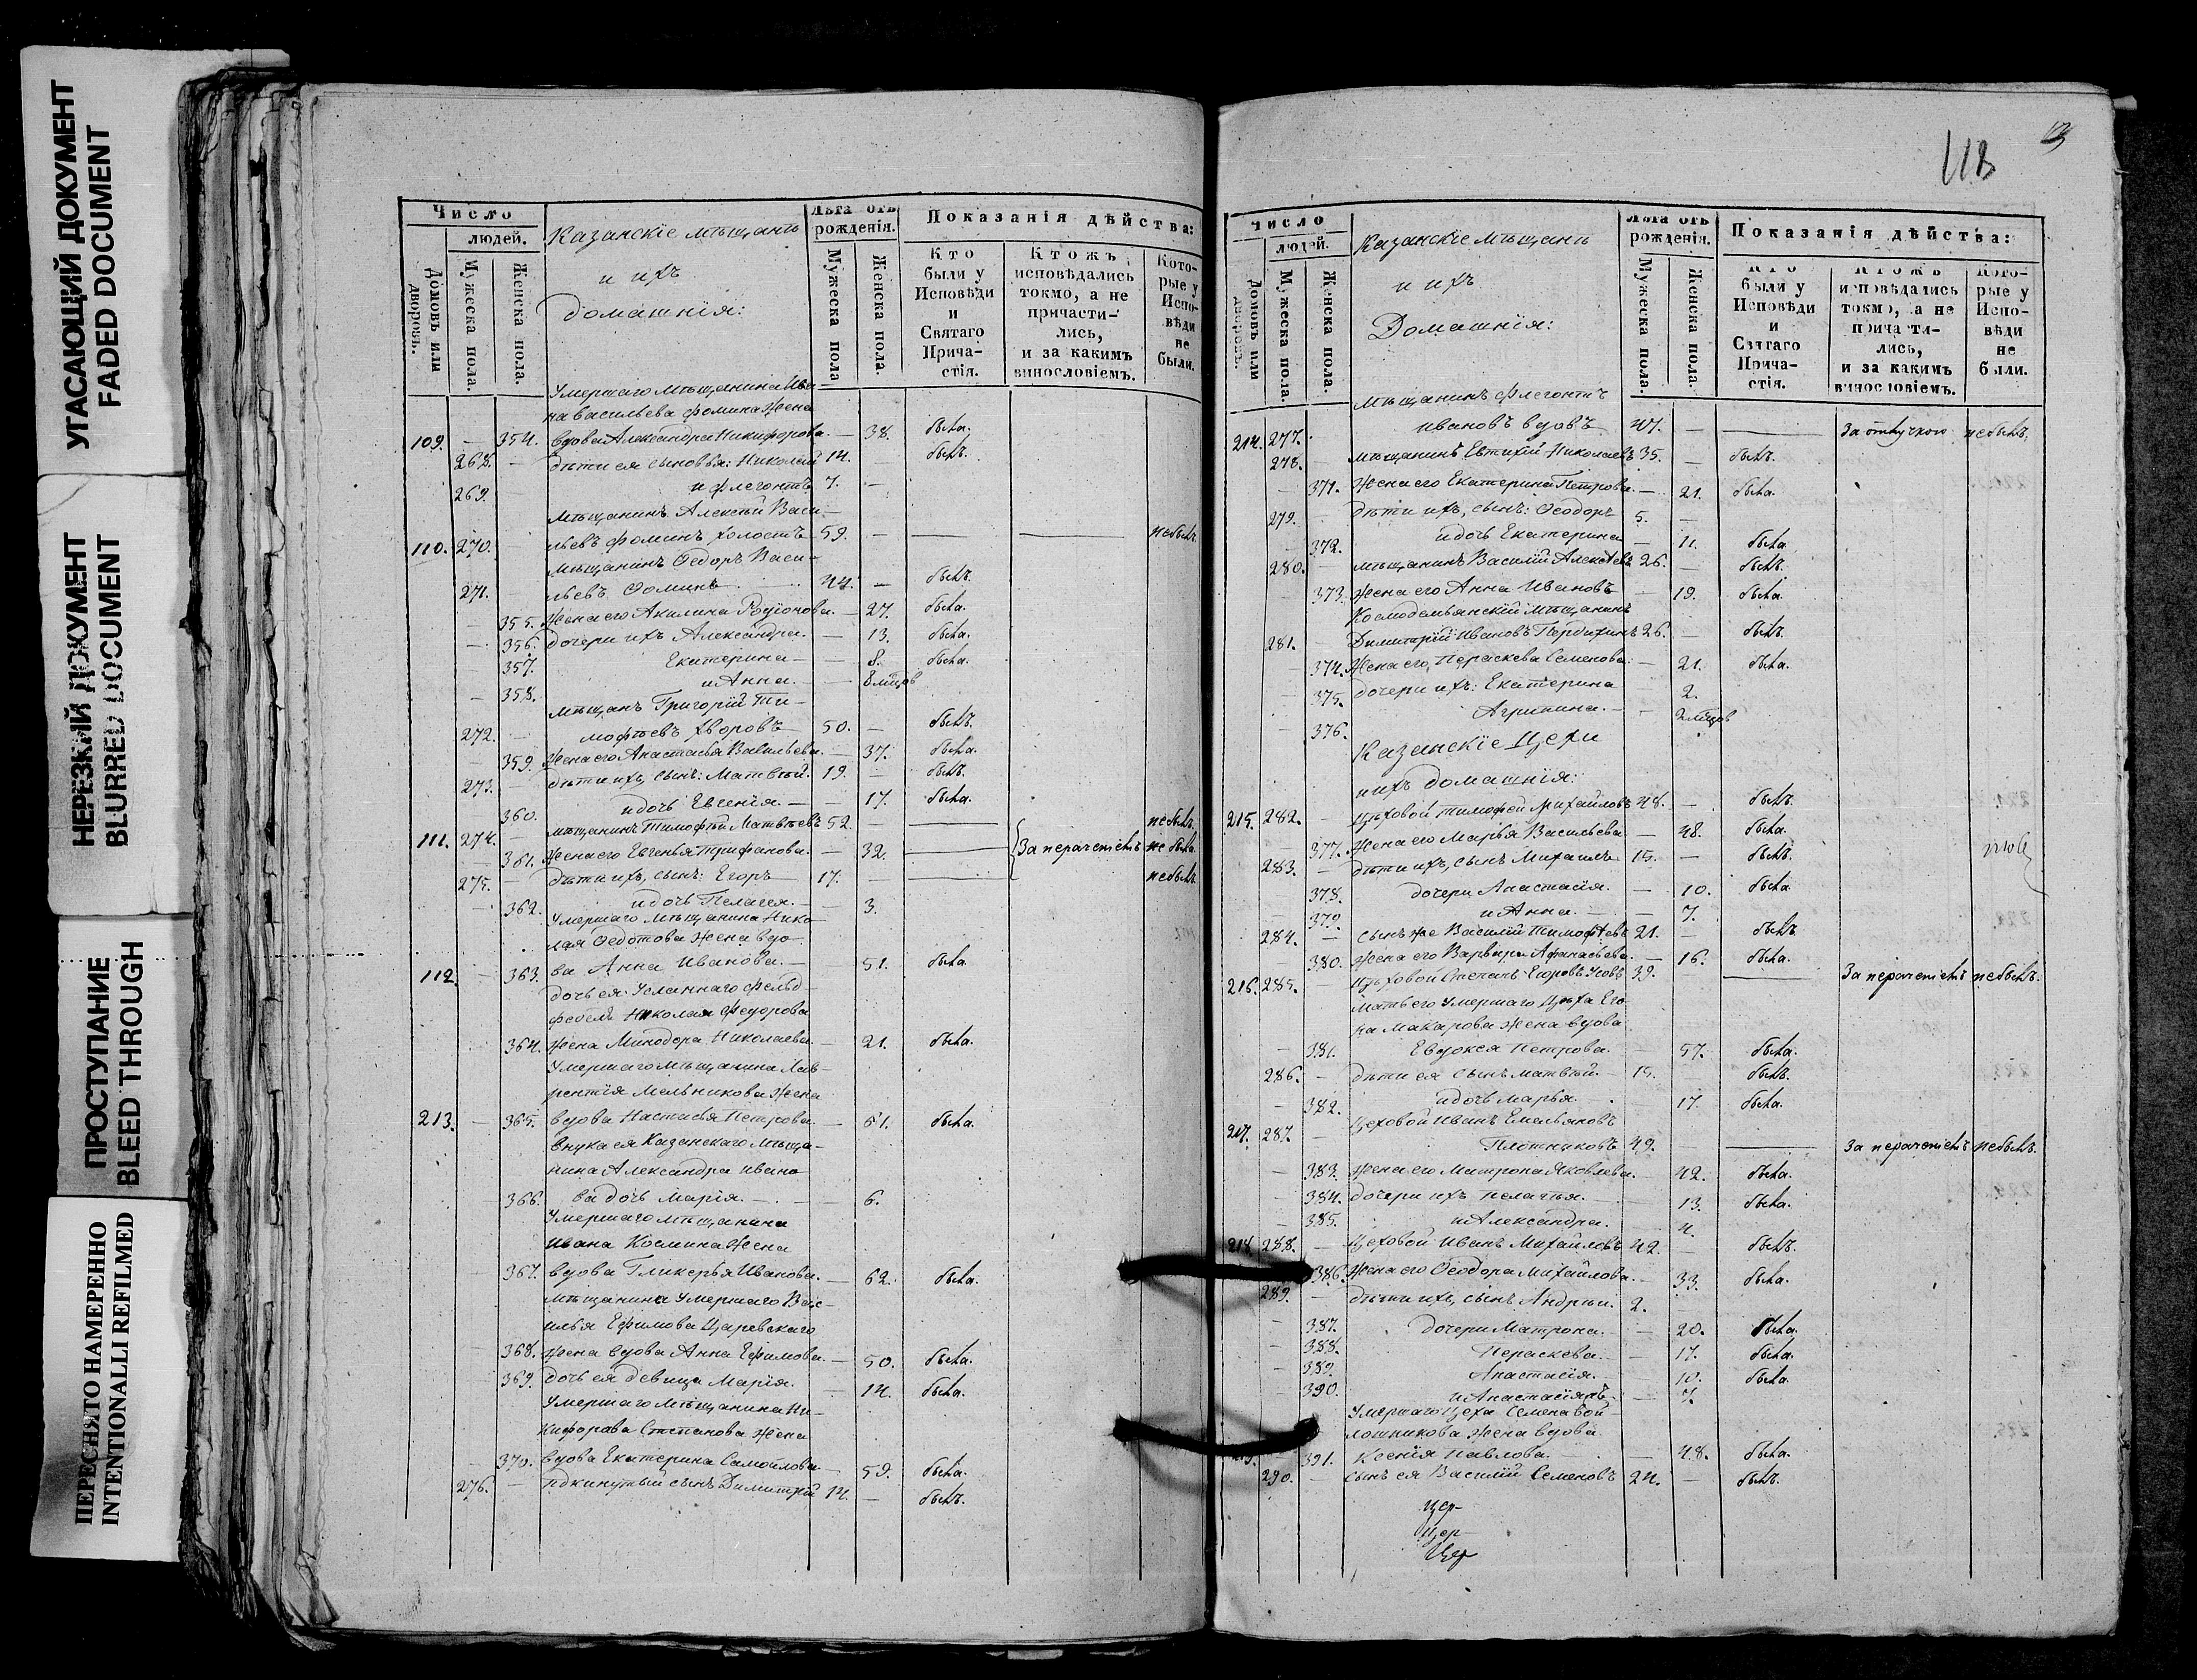 УГАСАЮЩИЙ ДОКУМЕНТ
FADED DOCUMENT
НЕРЕЗКИЙ ДОКУМЕНТ
BLURRED DOCUMENT
ПРОСТУПАНИЕ
BLEED THROUGH
ПЕРЕСНЯТО НАМЕРЕННО
INTENTIONALLI REFILMED
Число
людей.
Домовъ или дворовъ.
Мужеска пола.
Женска пола.
Казанскіе мѣщане
и ихъ
домашнія:
Лѣта отъ рожденія.
Мужеска пола
Женска пола.
Показанія дѣйства:
Кто были у Исповѣди и Святаго Прича-стія.
Ктожъ исповѣдались токмо, а не причасти-лись, и за какимъ винословіемъ.
Кото-рые у Испо-вѣди не были.
Умершаго мѣщанина Ива-
на васильева Фомина жена
109. — 354. вдова Александра Никифорова. — 38. была.
268. — дѣти ея сыновья: Николай 14. — былъ.
269. и Флегонтъ 7. —
Мѣщанинъ Алексѣй Васи-
110. 270. льевъ Фоминъ холостъ 59. — небылъ.
Мѣщанинъ Ѳедоръ Васи-
271. льевъ Ѳоминъ 44. — былъ.
— 355. Жена его Акилина Родіонова. — 27. была.
— 356. дочери ихъ Александра. — 13. была.
357. Екатерина — — 8. была.
— 358. и Анна. — — 8 мцов
Мѣщанъ Григорій Ти-
272. — мофѣевъ Хворовъ 50. — былъ.
— 359. Жена его Анастасья Васильева. — 37. была.
273. — дѣти ихъ, сынъ: Матвѣй. 19. — былъ.
360. и дочь Евгенія. — — 17. была.
111. 274. — мѣщанинъ Тимофѣй Матвѣевъ 52. — небылъ
361. Жена его Евгенья Трифанова. — 32. За нерачѣніемъ не была
275. — дѣти ихъ, сынъ: Егоръ 17. — небылъ
— 362. и дочь Пелагея. — — 3.
Умершаго мѣщанина Нико-
лая Ѳедотова жена вдо-
112. — 363. ва Анна Иванова. — 51. была
дочь ея: Усланнаго фельд-
фебеля Николая Федорова
364. жена Минодора Николаева. — 21. была.
Умершаго мѣщанина Лав-
рентія Мельникова жена
213. — 365. вдова Настасья Петрова. — 61. была.
Внука ея Казанскаго мѣща-
нина Александра Ивано-
366. ва дочь Марія. — — 6.
Умершаго мѣщанина
Ивана Космина жена
367. вдова Гликерья Иванова. — 62. была.
Мѣщанина умершаго Вас-
илья Ефимова Царевскаго
368. жена вдова Анна Ефимова. — 50. была.
369. дочь ея девица Марія. — 14. была.
Умершаго мѣщанина Ни-
кифорова Степанова жена
370. вдова Екатерина Самойлова. — 59. была.
276. — подкинутый сынъ Димитрій 14. — былъ.
113
Число
людей.
Домовъ или дворовъ.
Мужеска пола.
Женска пола.
Казанскіе мѣщане
и ихъ
Домашнія:
Лѣта отъ рожденія.
Мужеска пола.
Женска пола.
Показанія дѣйства:
Кто были у Исповѣди и Святаго Прича-стія.
Ктожъ исповѣдались токмо, а не причасти-лись, и за какимъ винословіемъ.
Кото-рые у Испо-вѣди не были.
Мѣщанинъ Флегонтъ
214. 277. Ивановъ вдовъ 47. — За отлучкою небылъ.
278. — Мѣщанинъ Евтихій Николаевъ 35. — былъ.
— 371. Жена его Екатерина Петрова. — 21. была.
279. — дѣти ихъ, сынъ: Ѳеодоръ 5. —
— 372. и дочь Екатерина — 11. была
280. — мѣщанинъ Василій Алексѣевъ 26. — былъ.
— 373. Жена его Анна Ивановъ — 19. была.
Космодемьянскій мѣщанинъ
281. Димитрій Ивановъ 26. — былъ.
— 374. Жена его, Пераскева Семенова. — 21. была.
— 375. дочери ихъ: Екатерина — 2.
— 376. Агрипина. — — 2 мцов
Казанскіе Цехи
и ихъ домашнія:
215. 282. — Цѣховой Тимофей Михайловъ 48. — былъ.
377. Жена его Марья Васильева. — 48. была.
283. — дѣти ихъ, сынъ Михаилъ 15. — былъ.
378. дочери Анастасія. — 10. была
379. и Анна. — — 7.
284. — сынъ же Василій Тимофѣевъ 21. — былъ
— 380. Жена его Варвара Афанасьева. — 16. была.
216. 285. — Цѣховой Степанъ Егоровъ Усовъ 39. За нерачѣніемъ небылъ.
Мать его умершаго Цѣха Его-
ра Макарова жена вдова
— 381. Евдокея Петрова. — 57. была.
286. — дѣти ея сынъ Матвѣй. 15. — былъ.
— 382. и дочь Марья. — 17. была.
217. 287. — Цеховой Иванъ Емельяновъ
Плотниковъ 49. За нерачѣніемъ небылъ.
— 383. жена его Матрона Яковлева. — 42. была.
— 384. дочери ихъ Пелагья. — 13. была.
— 385. и Александра. — 4.
218. 288. — Цеховой Иванъ Михайловъ 42. — былъ.
386. Жена его Ѳеодора Михайлова. — 33. была.
289. — дѣти ихъ, сынъ Андрѣи. 2. —
— 387. дочери Матрона. — 20. была.
— 388. Пераскева. — 17. была.
— 389. Анастасія. — 10. была.
— 390. и Анастасія — 7.
Умершаго Цеха Семена Вой-
лошникова жена вдова
391. Ксенія Павлова. — 48. была.
290. — сынъ ея Василій Семеновъ 24. — былъ.